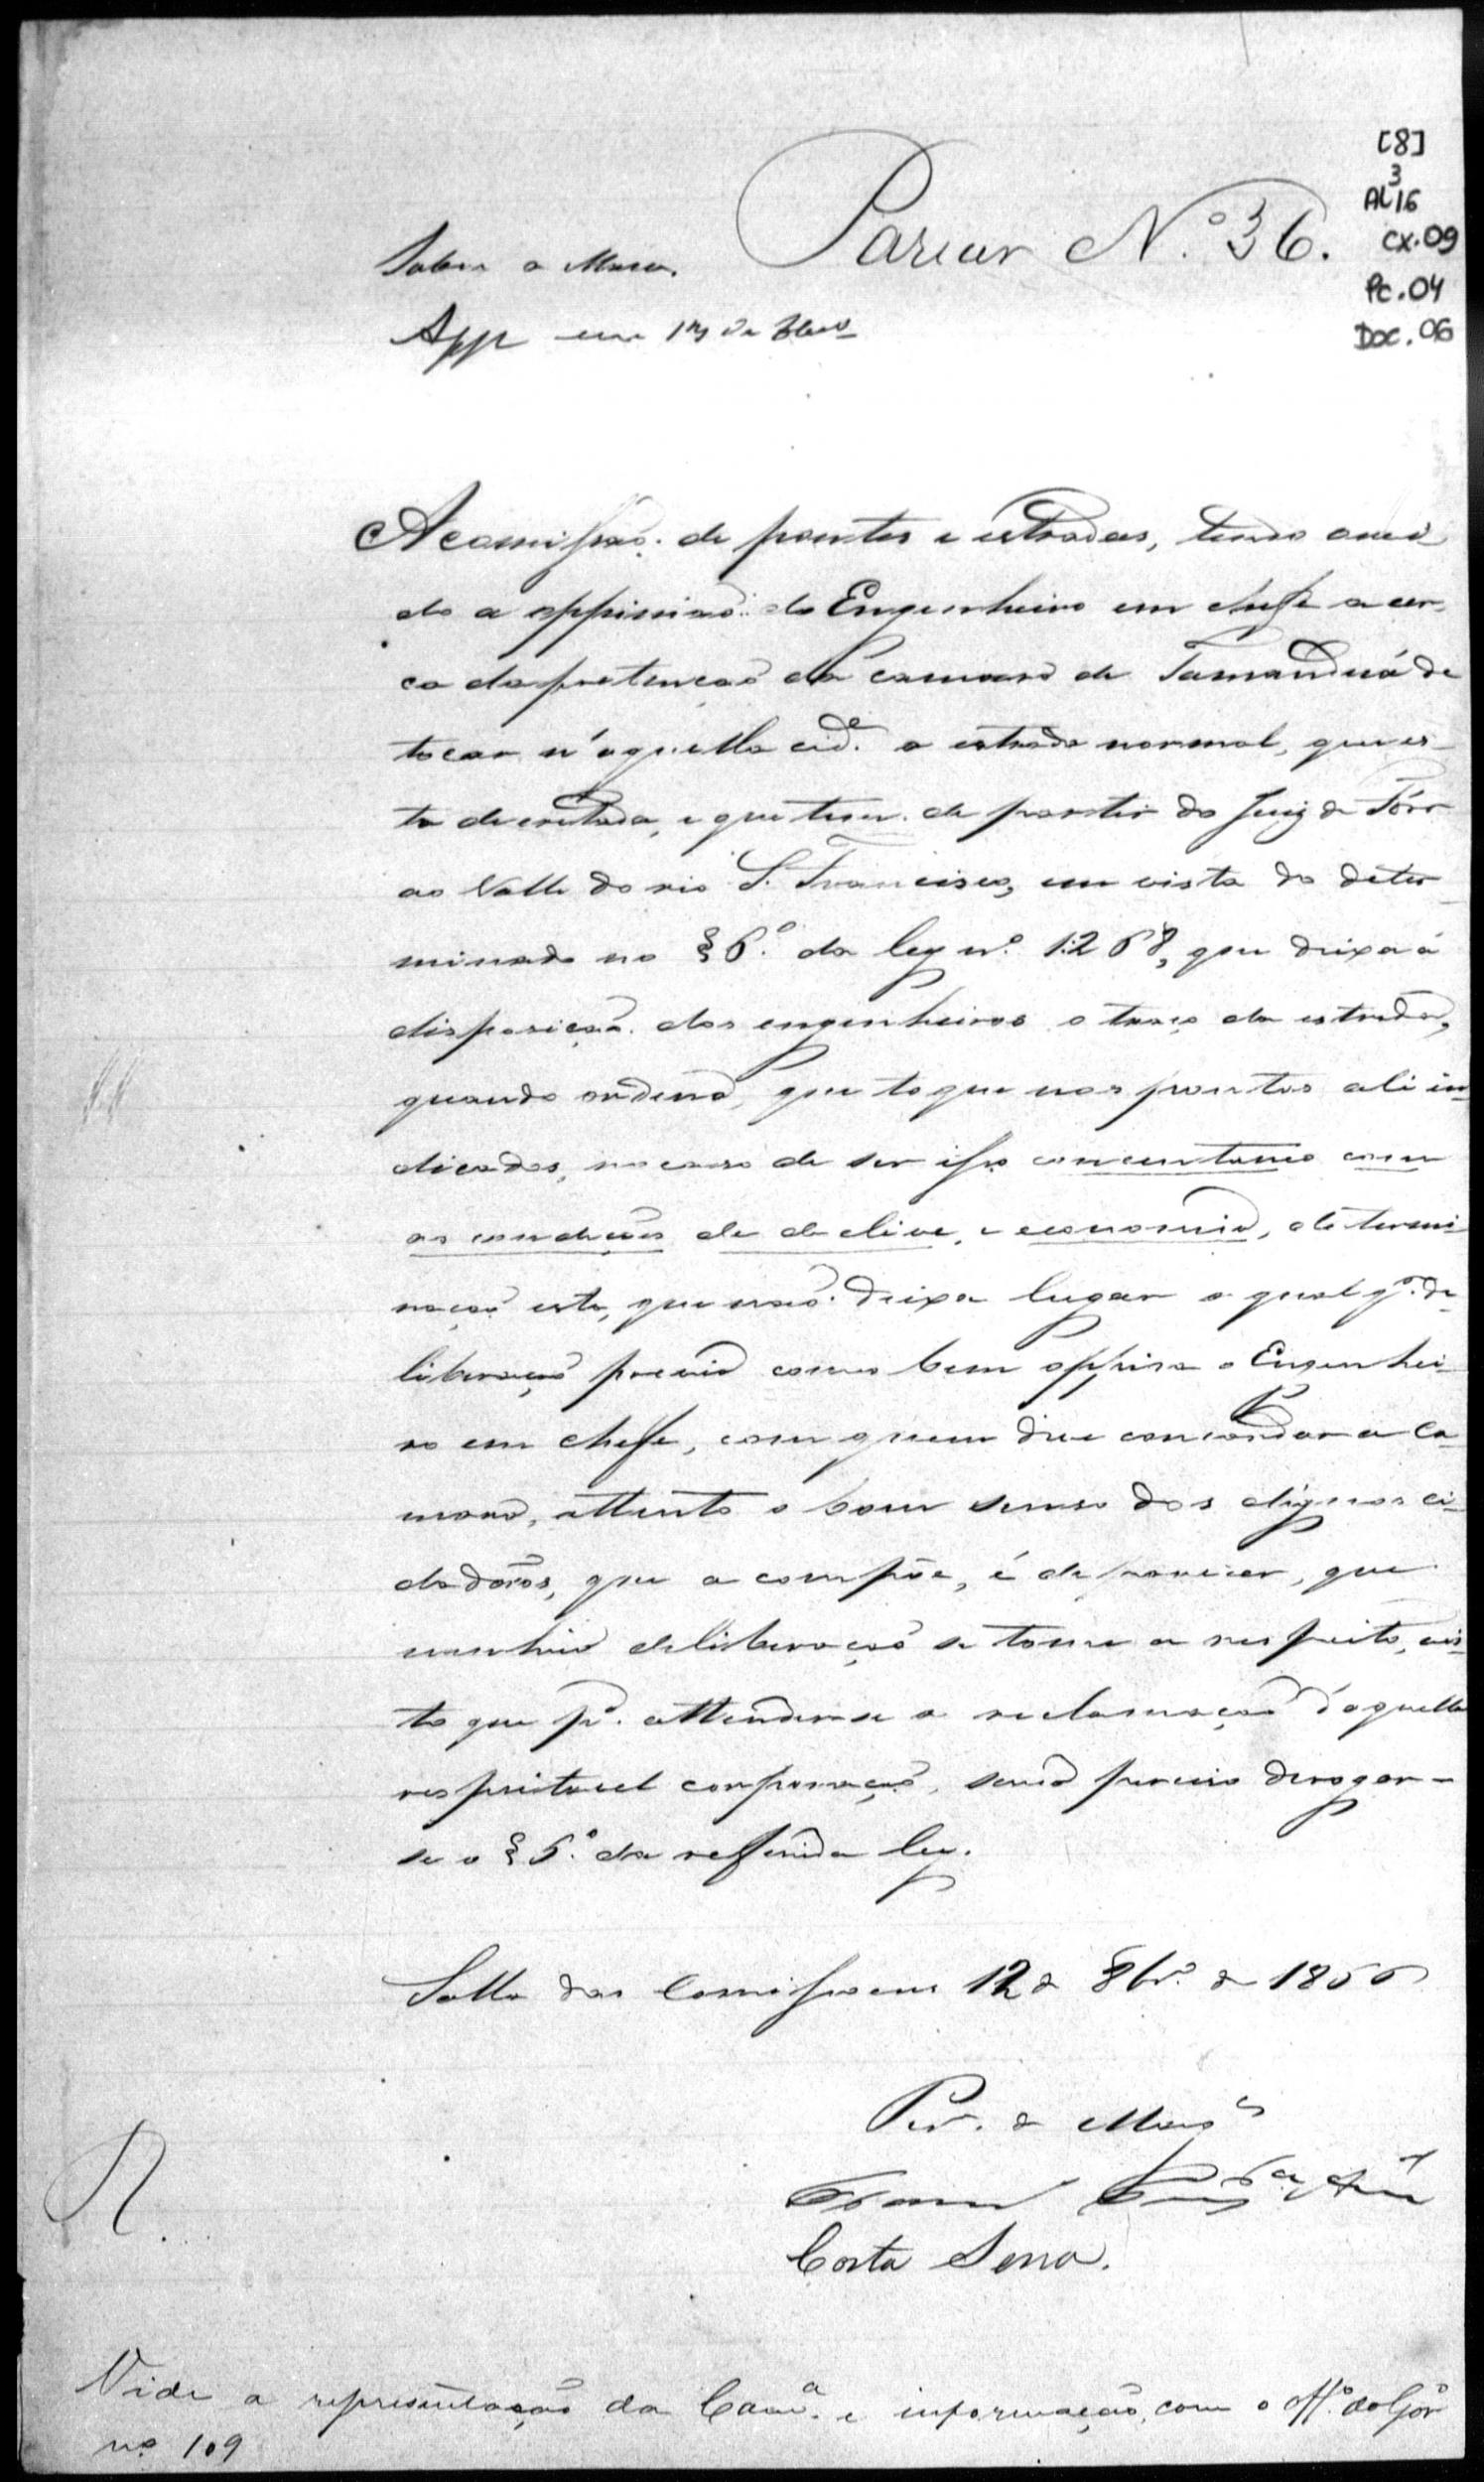 [8]
3
AL 16
CX. 09
Pc. 04
Doc. 06
Parecer N.º 36.
Sobre a Mesa.
App em de
A comissaõ de pontes e estradas, tendo ouvi-
do a oppiniaõ do Engenheiro em cheffe acer-
ca da pretençaõ da camara de Tamanduá de
tocar n'aquella cid.e a estrada normal, que es-
ta decretada, e que tem de partir do Juiz de Fóra
ao Valle do rio S. Francisco, em vista do deter-
minado no § 6.º da ley n.º 1:268, que deixa á
disposiçaõ dos engenheiros o traço da estrada,
quando ordena, que toque nos pontos ali in-
dicados, no caso de ser isso concentaneo com
as condições de declive, e economia, determi-
naçaõ esta, que naõ deixa lugar a qualq.r de-
liberaçaõ previa como bem oppina o Engenhei-
ro em cheffe, com quem deve concordar a ca-
mara, attento o bom senso dos dignos ci-
dadaõs, que a compõe, é de parecer, que
nenhuã deliberaçaõ se tome a respeito, vis-
to que p.a attender-se a reclamaçaõ d'aquella
respeitavel corporaçaõ, seria preciso derogar-
se o § 6.º da refferida ley.
Salla das Comissoens 12 de 8br.º de 1866
Per. de Mag.es
Costa Sena.
R.
Vide a representação da Cam.a e informação, com o off.º do Gov.º
nº 109